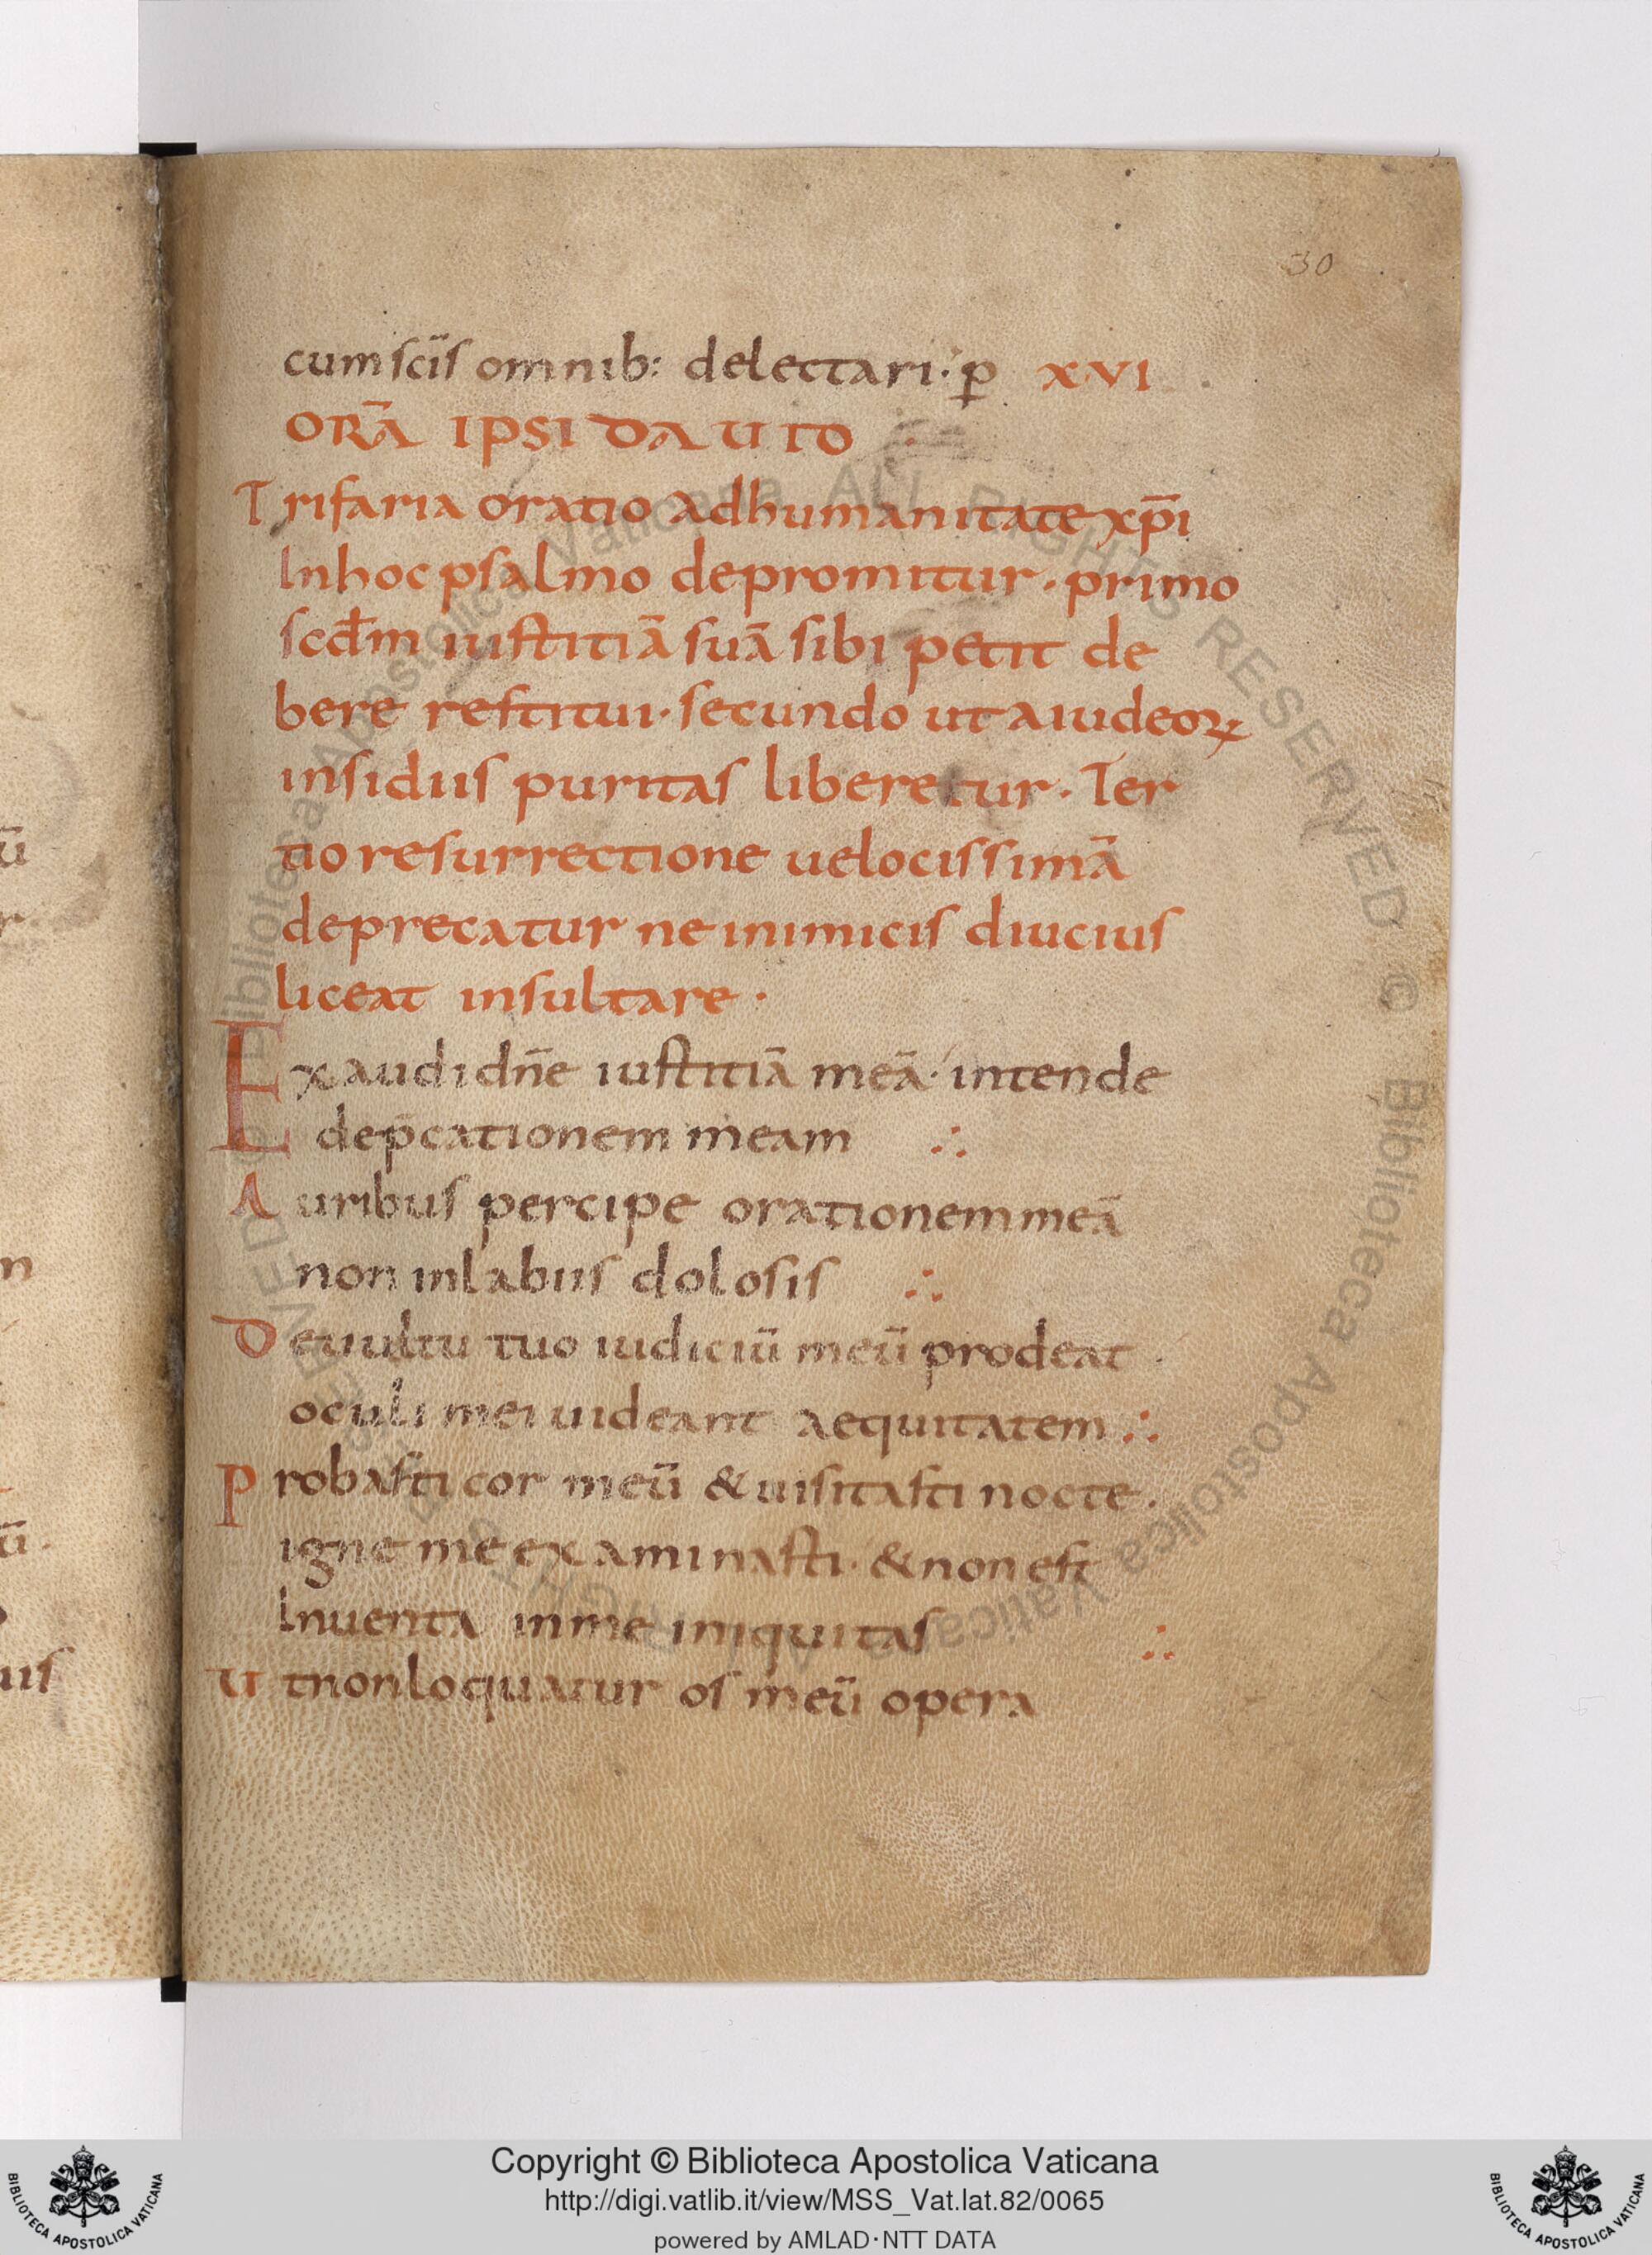 30
cum sc̄is omnib: delectari· p̲ XVI
ORĀ IPSI DAUID
Trifaria oratio ad humanitate xp̄i
In hoc psalmo depromitur· primo
scd̄m iustitiā suā sibi petit de
bere restitui· secundo ut a iudeoꝝ
insidiis puritas liberetur· Ter
tio resurrectione uelocissimā
deprecatur ne inimicis diucius
liceat insultare·
Exaudi dn̄e iustitiā meā· intende
dep̄cationem meam ∴
Auribus percipe orationem meā
non in labiis dolosis ∴
De uultu tuo iudiciū meū prodeat·
oculi mei uideant aequitatem ∴
Probasti cor meū & uisitasti nocte·
igne me examinasti· & non est
Inuenta in me iniquitas ∴
Ut non loquatur os meū opera
ū
r
n
ū·
uis
Biblioteca Apostolica Vaticana ALL RIGHTS RESERVED © Biblioteca Apostolica Vaticana ALL RIGHTS RESERVED ©
Copyright © Biblioteca Apostolica Vaticana
http://digi.vatlib.it/view/MSS_Vat.lat.82/0065
powered by AMLAD·NTT DATA
BIBLIOTECA APOSTOLICA VATICANA
BIBLIOTECA APOSTOLICA VATICANA